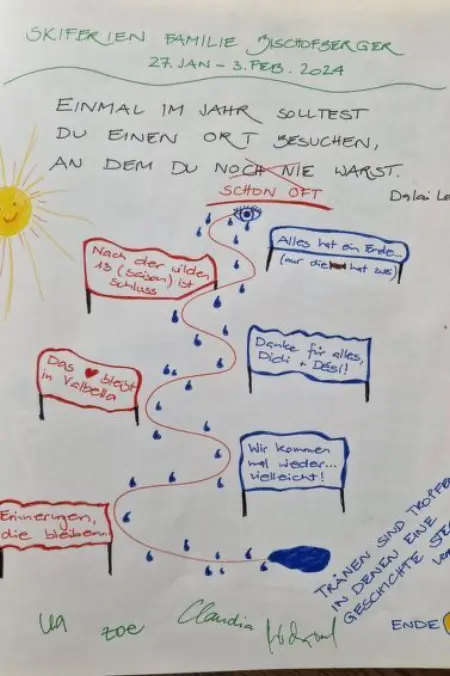 SKIFERIEN FAMILIE BISCHOFBERGER
27. JAN – 3. FEB. 2024
EINMAL IM JAHR SOLLTEST
DU EINEN ORT BESUCHEN,
AN DEM DU NOCH NIE WARST.
SCHON OFT
Dalai La
Alles hat ein Ende...
(nur die hat zwei)
Nach der wilden
13 (Saison) ist
Schluss
Danke für alles,
Didi + Dési!
Das ♥ bleibt
in Valbella
Wir kommen
mal wieder...
vielleicht!
Erinnerungen,
die bleiben...
TRÄNEN SIND TROPFEN
IN DENEN EINE
GESCHICHTE STE
Zoe
Claudia
ENDE